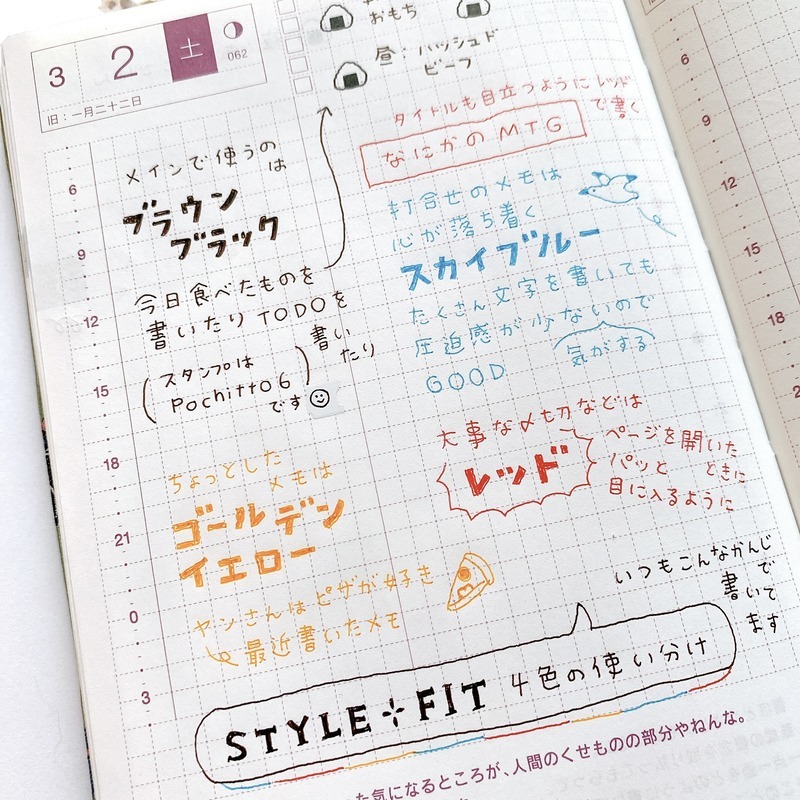 3 2 土
062
旧:一月二十二日
おもち
昼:ハッシュド
ビーフ
メインで使うの
は
ブラウン
ブラック
今日食べたものを
書いたりTODOを
書い
たり
(スタンプは
Pochitto6
です)
タイトルも目立つようにレッド
で書く
なにかのMTG
打合せのメモは
心が落ち着く
スカイブルー
たくさん文字を書いても
圧迫感が少ないので
気がする
GOOD
大事な〆切などは
レッド
ページを開いた
ときに
パッと
目に入るように
ちょっとした
メモは
ゴールデン
イエロー
ヤンさんはピザが好き
最近書いたメモ
いつもこんなかんじ
で
書いて
ます
STYLE FIT 4色の使い分け
た気になるところが、人間のくせものの部分やねんな。
6
9
12
15
18
21
0
3
6
9
12
15
18